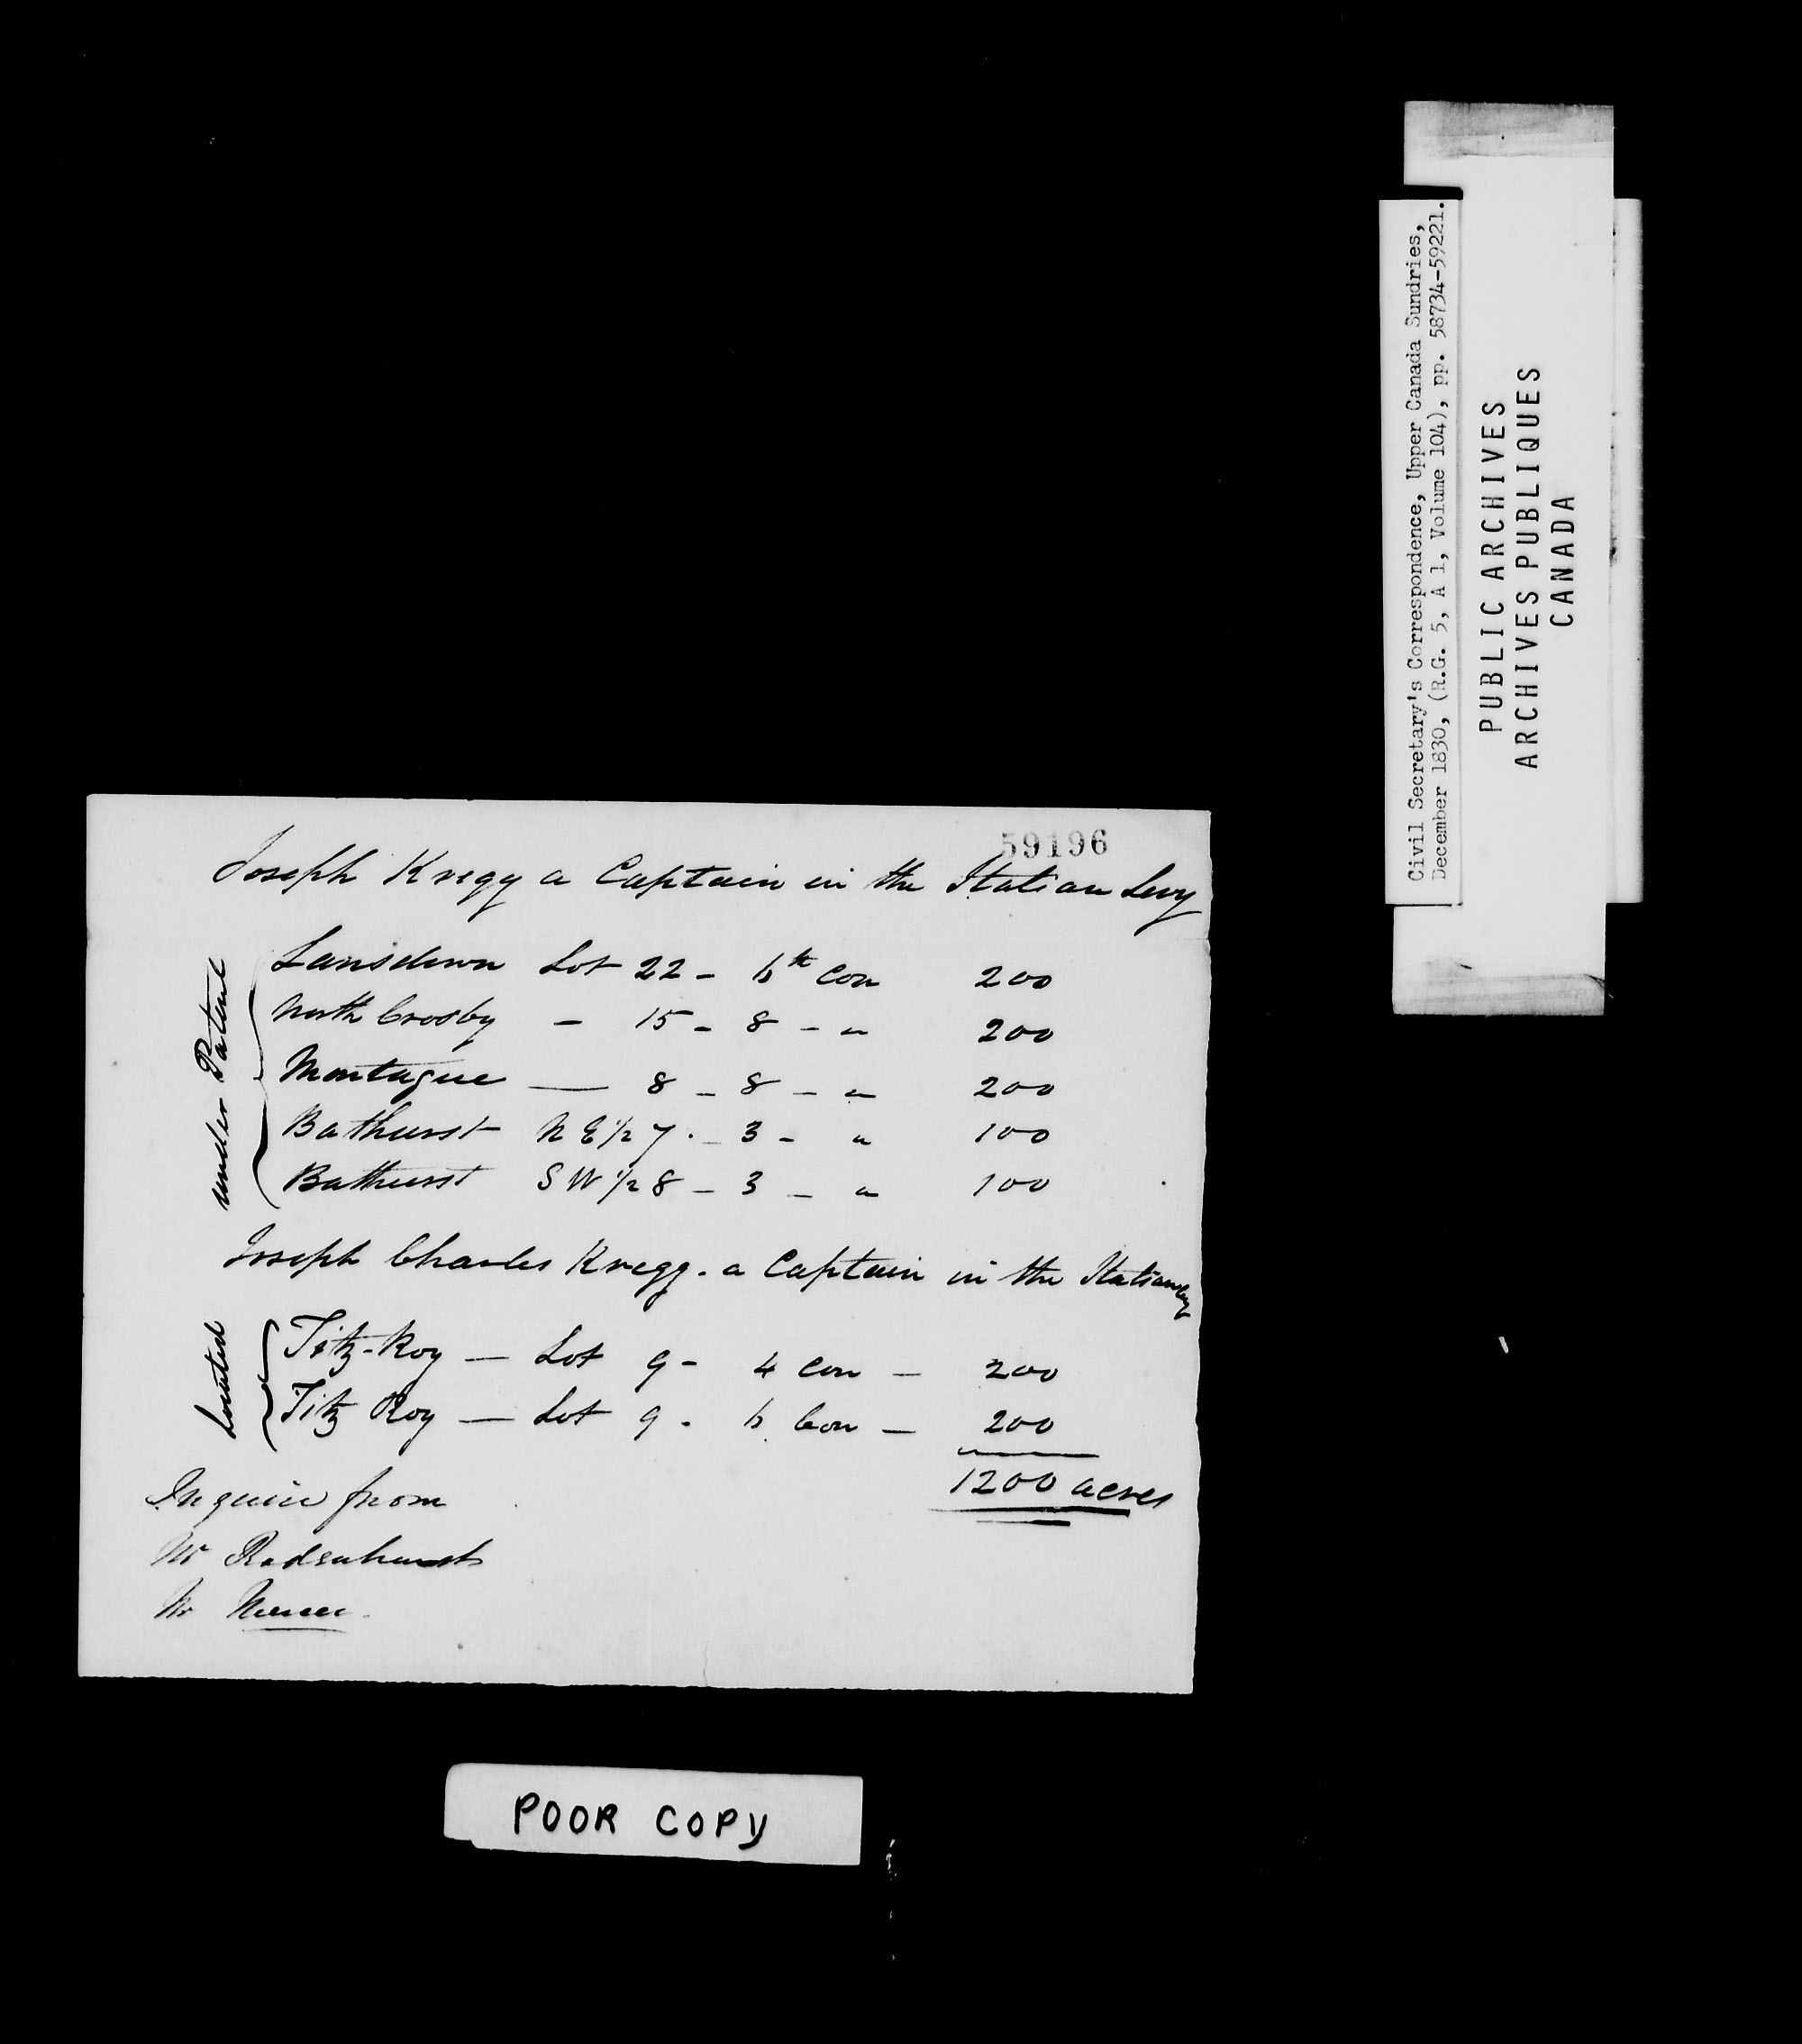 59196
Joseph Kregg a Captain in the Italian Levy
under Patent
Lansdown Lot 22 - 6th Con 200
North Crosby - 15 - 8 - " 200
Montague — 8 - 8 - " 200
Bathurst N E 1/2 7 . - 3 - " 100
Bathurst S W 1/2 8 - 3 - " 100
Joseph Charles Kregg. a Captain in the Italian Levy
Located
Fitz-Roy — Lot 9 - 4 Con — 200
Fitz Roy — Lot 9 . 6 Con — 200
1200 acres
Inquire from
Mr Radenhurst
Mr
POOR COPY
Civil Secretary's Correspondence, Upper Canada Sundries,
December 1830, (R.G. 5, A 1, Volume 104), pp. 58734-59221.
PUBLIC ARCHIVES
ARCHIVES PUBLIQUES
CANADA